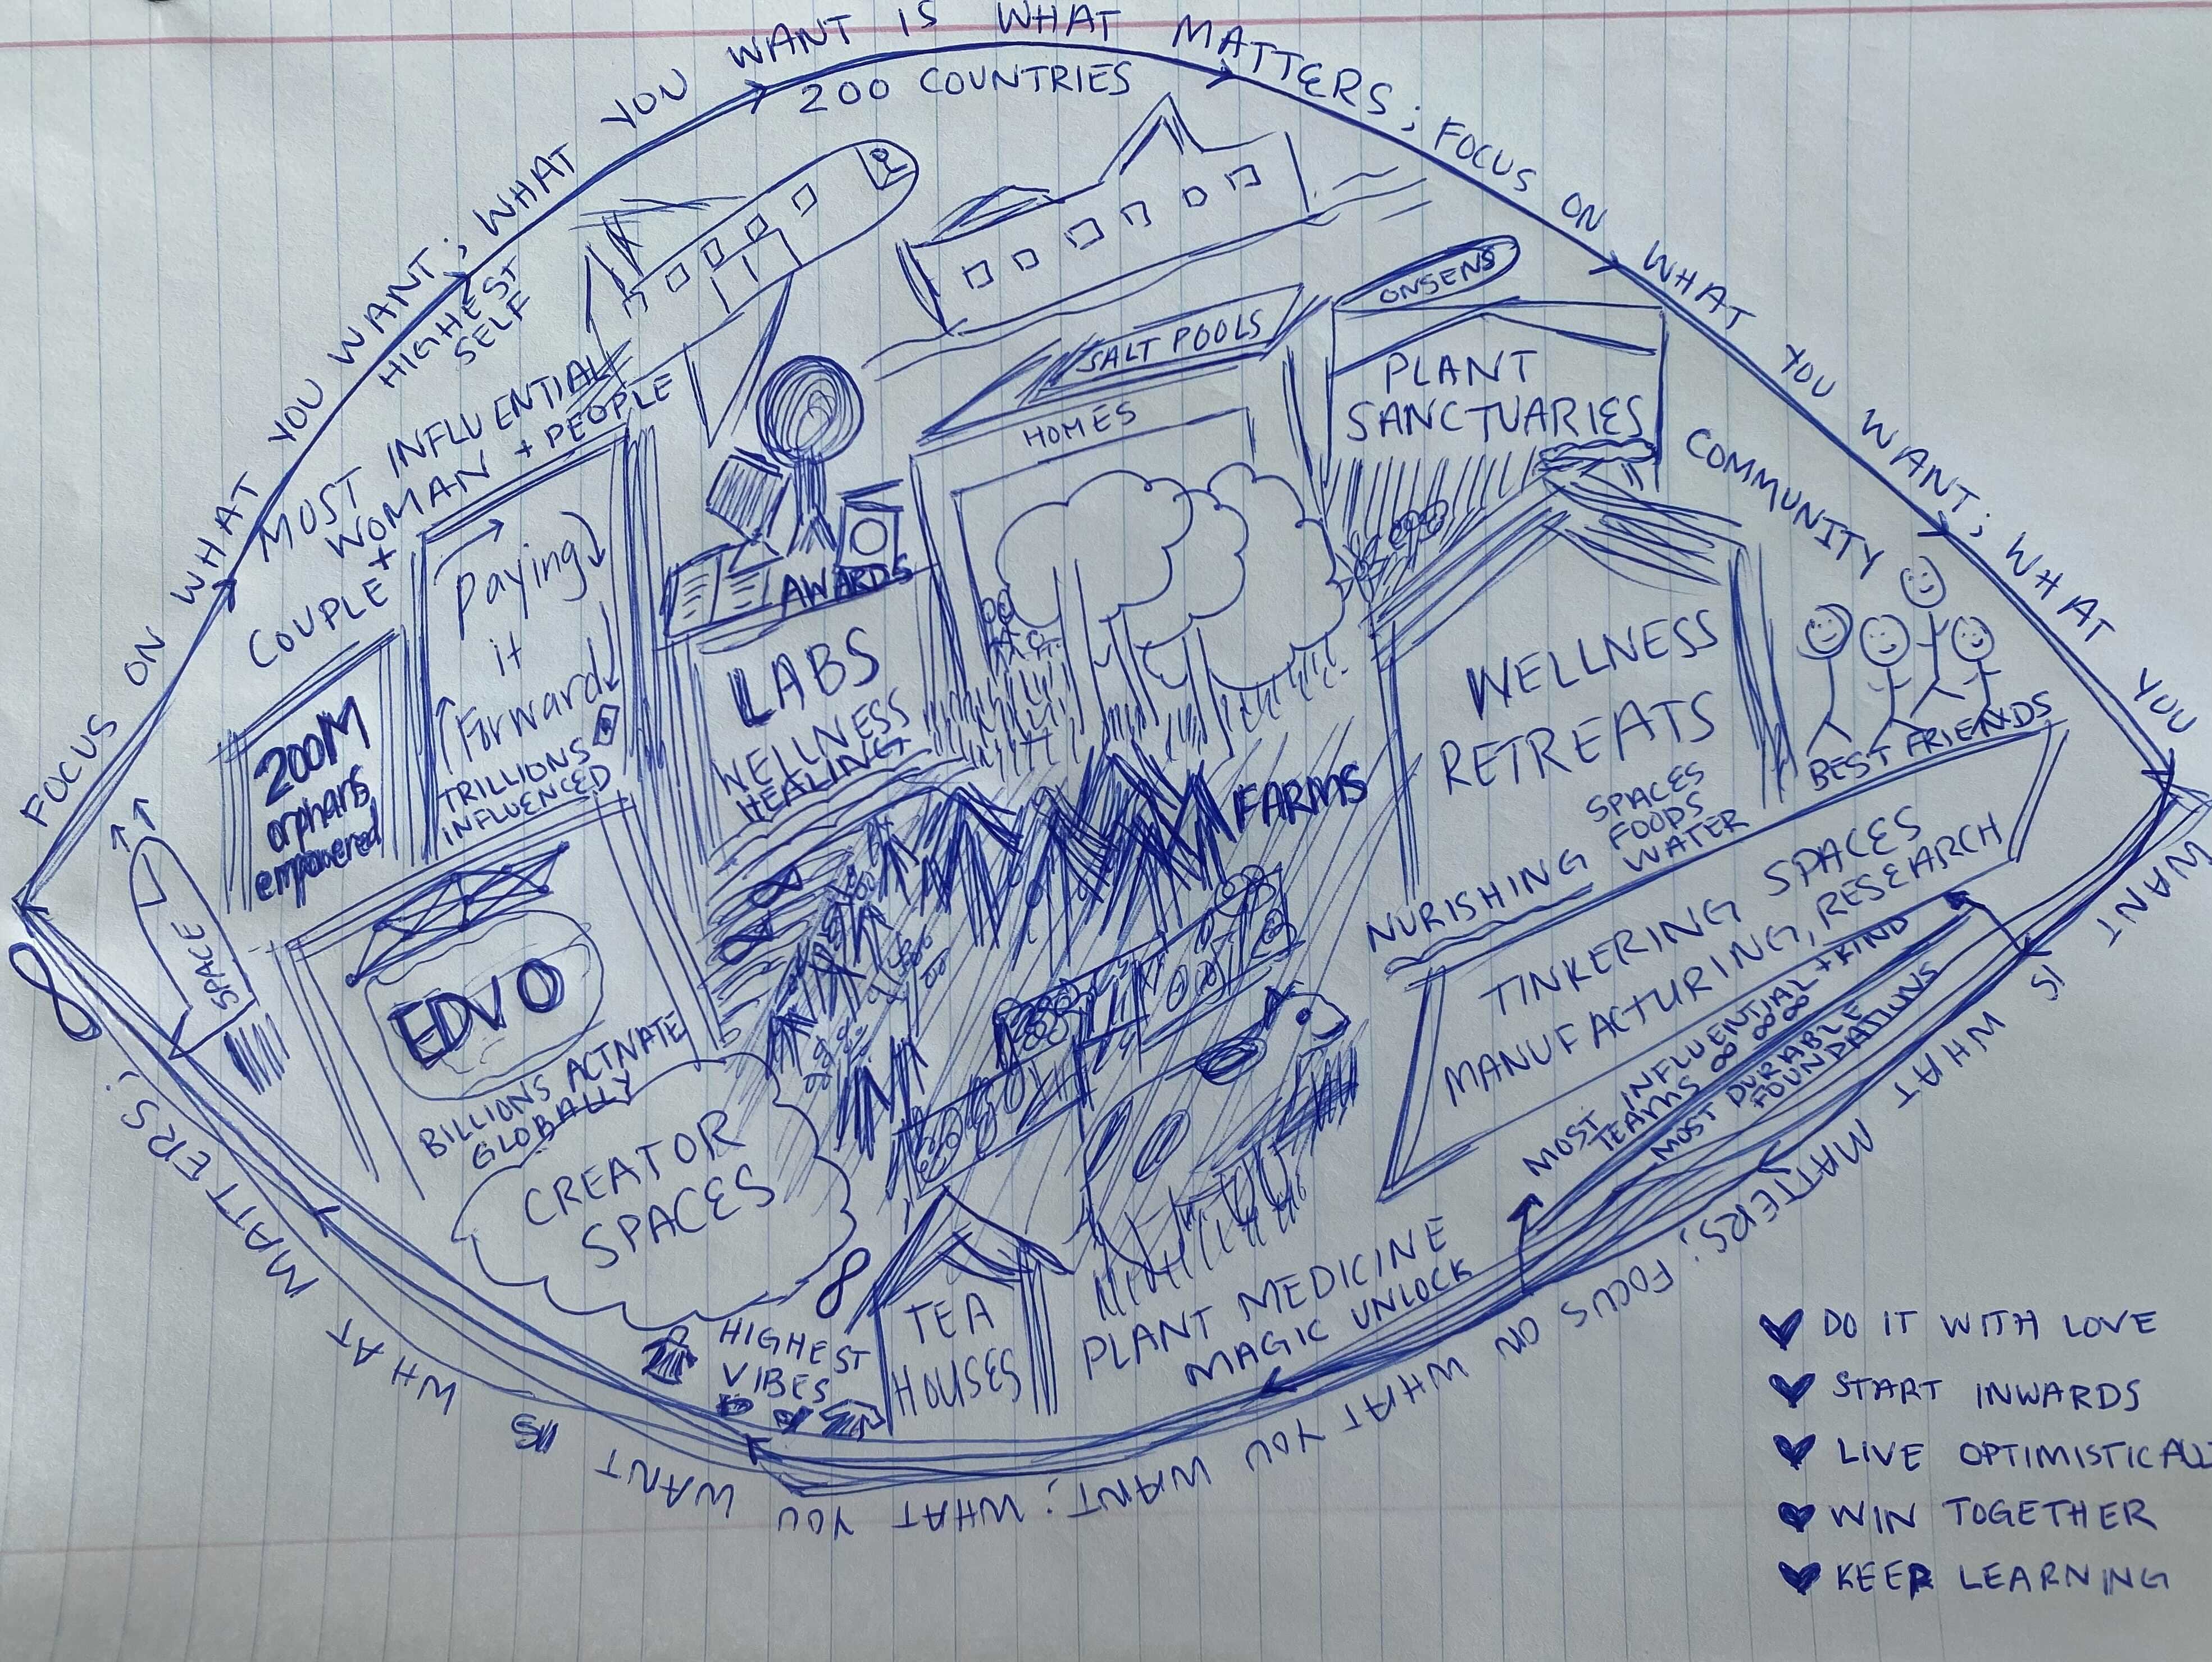 FOCUS ON WHAT YOU WANT; WHAT YOU WANT IS WHAT MATTERS; FOCUS ON WHAT YOU WANT; WHAT YOU WANT IS WHAT MATTERS; FOCUS ON WHAT YOU WANT; WHAT YOU WANT IS WHAT MATTERS;
200 COUNTRIES
HIGHEST
SELF
MOST INFLUENTIAL
WOMAN + PEOPLE
COUPLE +
ONSENS
SALT POOLS
HOMES
PLANT
SANCTUARIES
COMMUNITY
Paying
it
Forward
TRILLIONS
INFLUENCED
200M
orphans
empowered
AWARDS
LABS
WELLNESS
HEALING
FARMS
WELLNESS
RETREATS
NURISHING SPACES
FOODS
WATER
BEST FRIENDS
SPACE
EDVO
BILLIONS ACTIVATE
GLOBALLY
CREATOR
SPACES
TINKERING SPACES
MANUFACTURING, RESEARCH
MOST INFLUENTIAL + KIND
TEAMS ∞ ∞ ∞
MOST DURABLE
FOUNDATIONS
HIGHEST
VIBES
TEA
HOUSES
PLANT MEDICINE
MAGIC UNLOCK
DO IT WITH LOVE
START INWARDS
LIVE OPTIMISTICALL
WIN TOGETHER
KEEP LEARNING